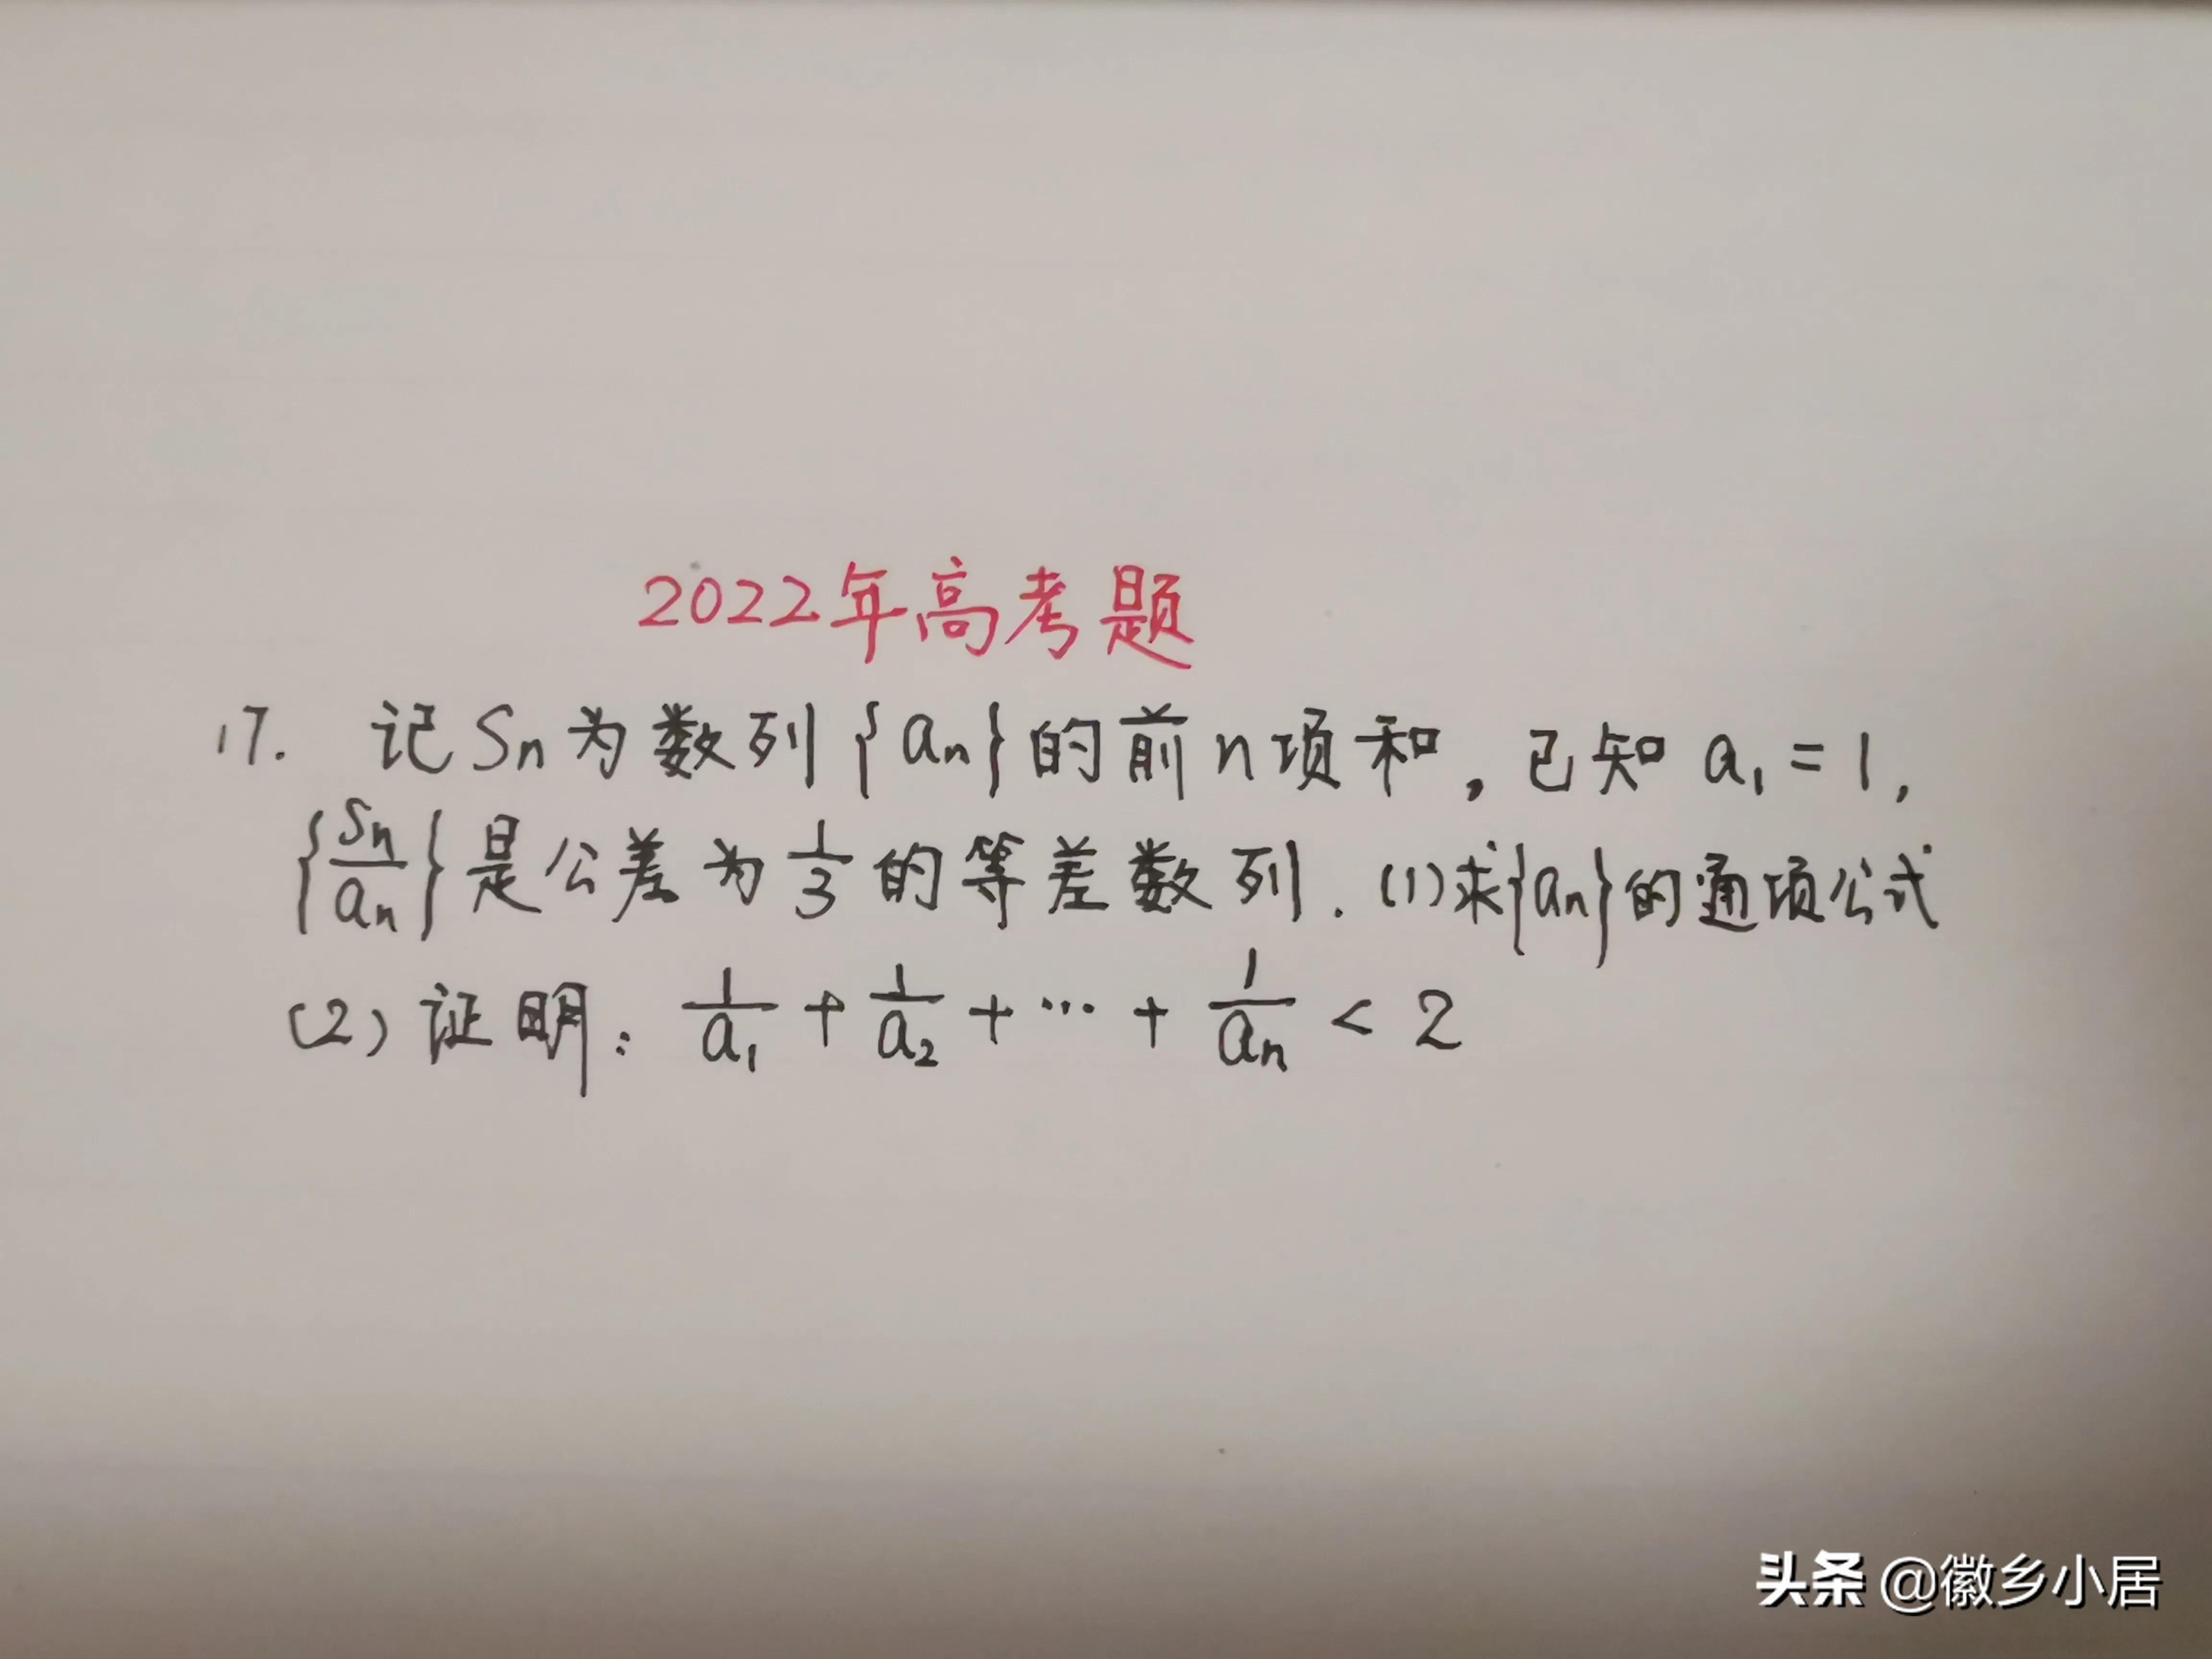 2022年高考题
17. 记Sn为数列{an}的前n项和，已知a₁=1，
{Sn/an}是公差为1/3的等差数列.(1)求{an}的通项公式
(2)证明：1/a₁+1/a₂+…+1/an<2
头条 @徽乡小居